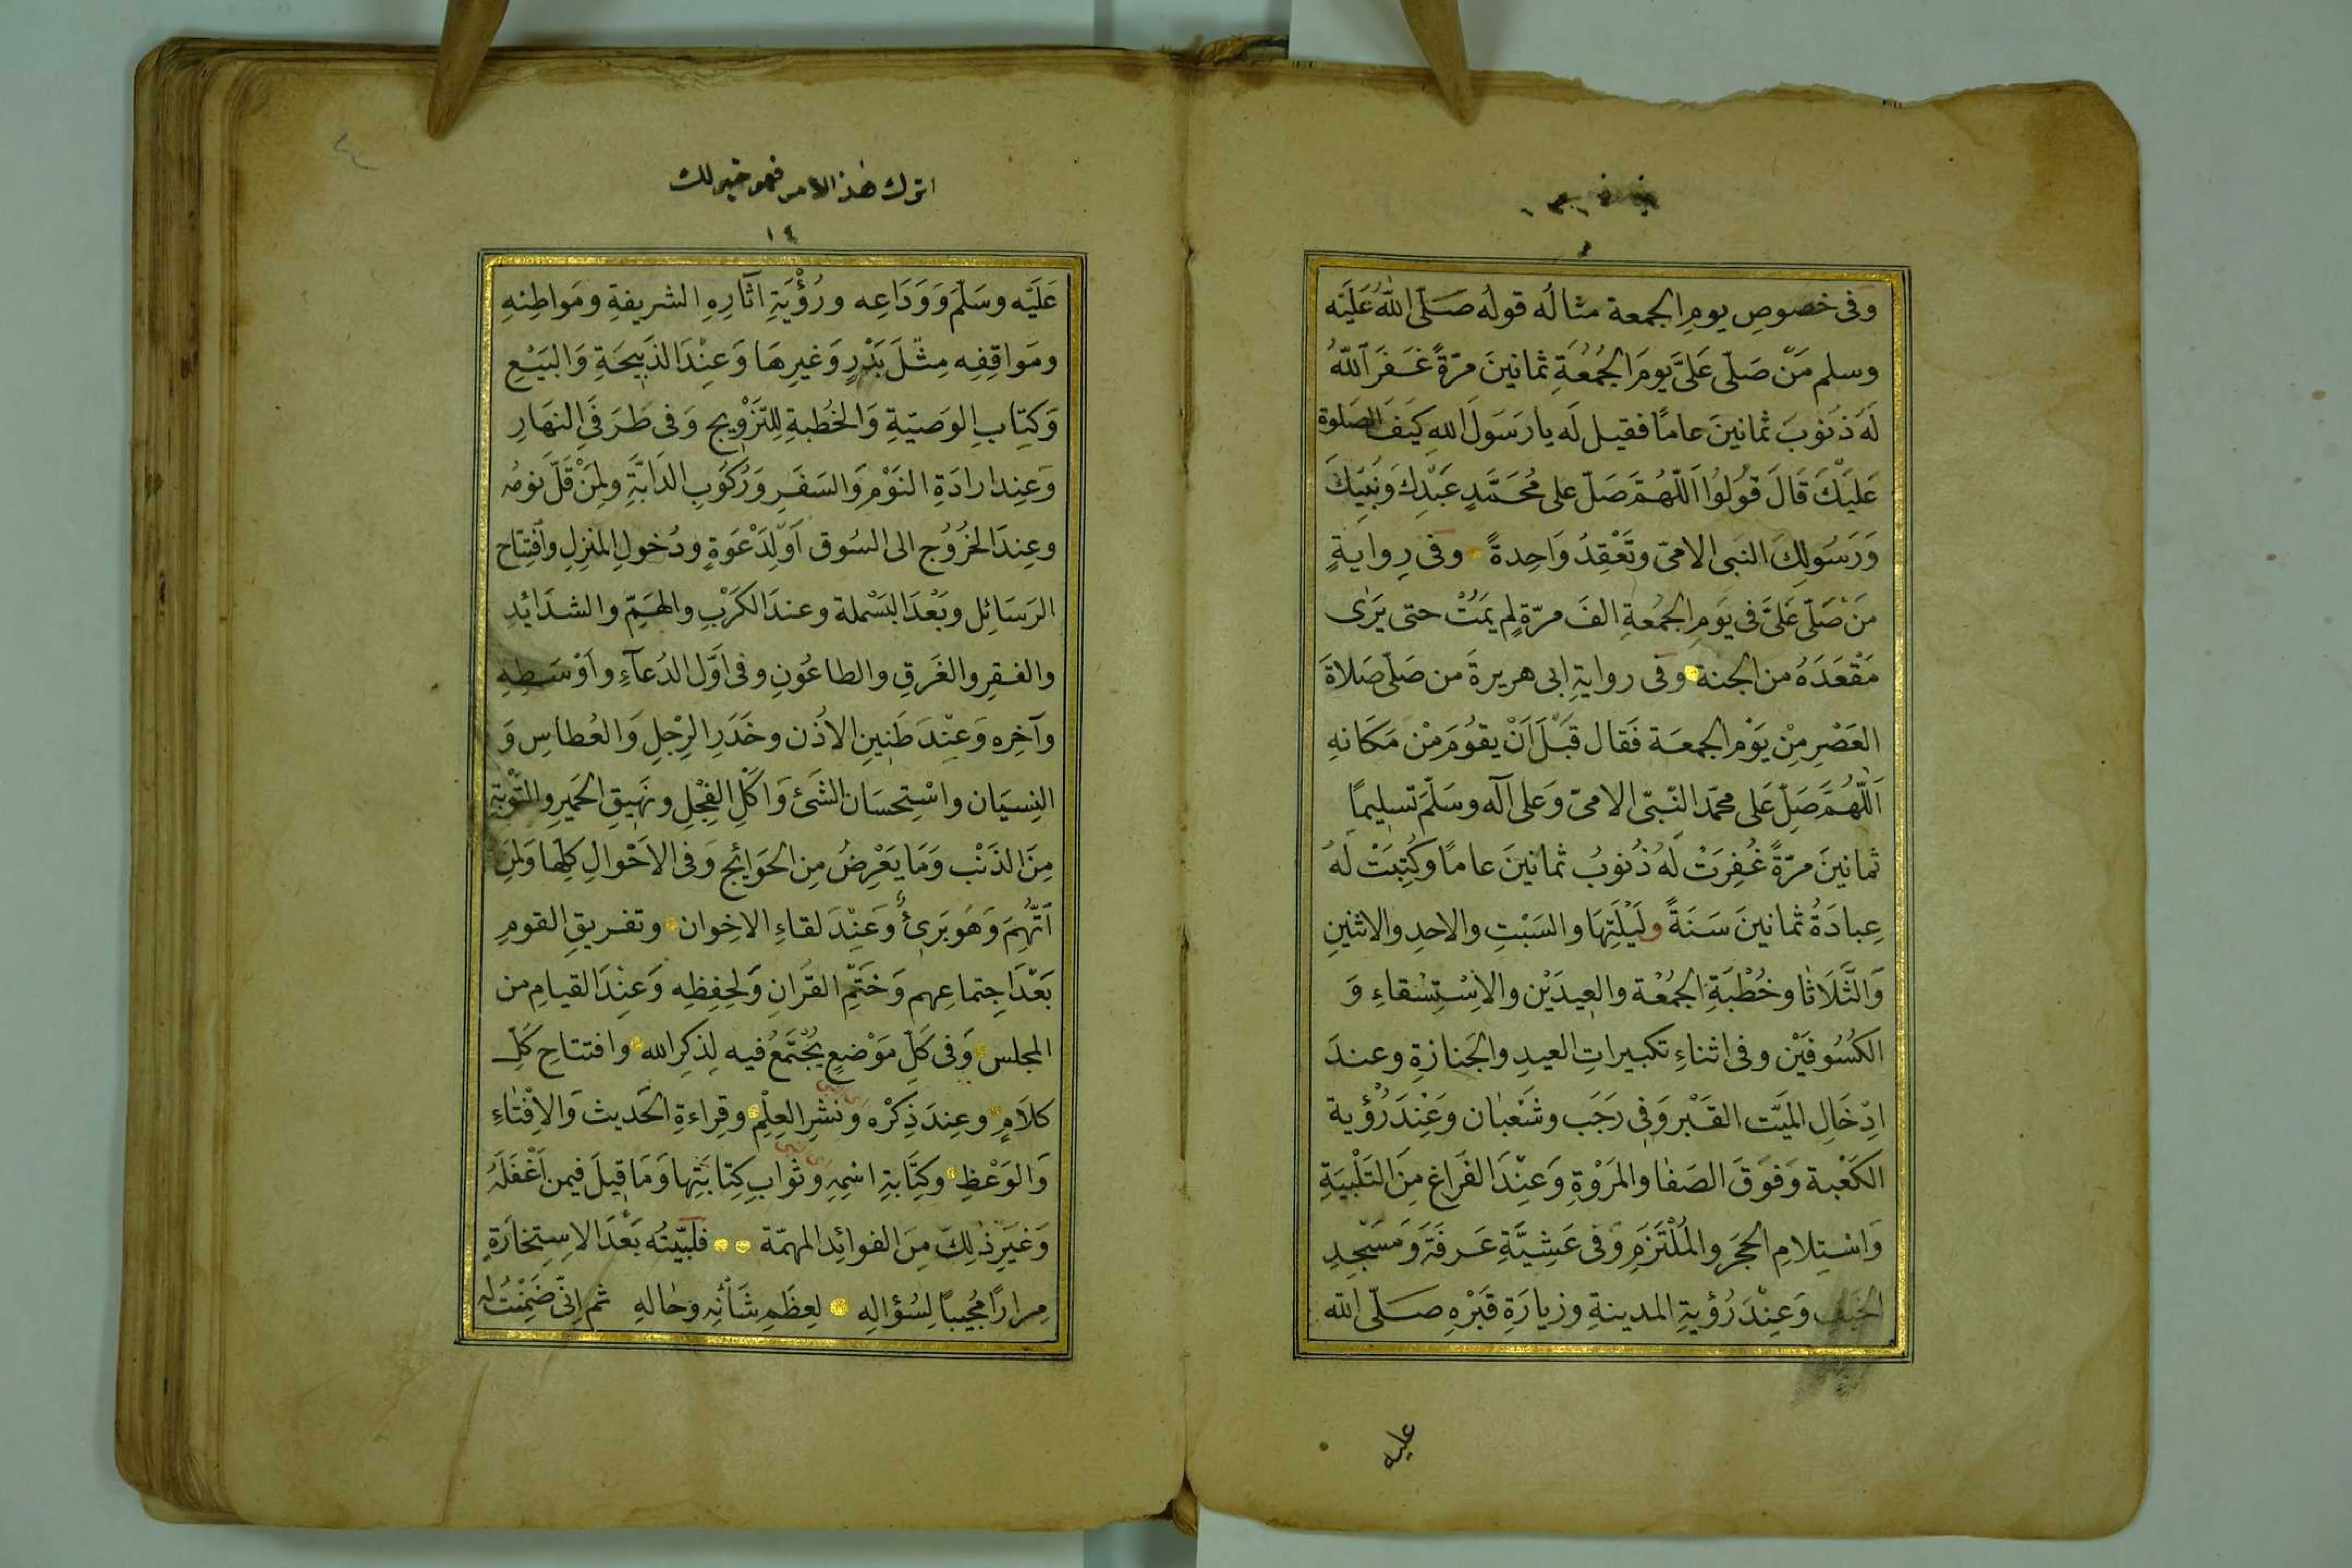 وَفى خصوصِ يومِ الجمعة مثالُه قولُه صَلّى اللهُ عَلَيْه
وسلم مَنْ صَلّى عَلَيَّ يومَ الجُمُعَةِ ثمانينَ مرّةً غَفَرَ اللهُ
لَهَ ذنوبَ ثمانينَ عامًا فقيل لَه يا رَسَولَ اللهِ كيَفَ الصَلوة
عَليْكَ قَالَ قُولُوا اَللّهُمَّ صَلّ على مُحَمَّدٍ عَبْدِكَ وَنَبِيّكَ
وَرَسُولِكَ النبى الامىّ وتَعْقِدُ وَاحِدةً وفى رِوايةٍ
مَنْ صَلّى عَلىَّ فى يوَمِ الجمُعةِ الفَ مرّةٍ لم يمَتُْ حتى يَرٰى
مَقْعَدَهُ من الجنة وفى روايةِ ابى هريرةَ من صَلّى صَلاةَ
العَصْرِ مِنْ يوَمْ الجمعَة فَقال قبَْلَ اَنْ يقوُمَ مْن مَكَانهِ
اَللّهُمَّ صَلِّ عَلى محمّد النّبىّ الامىّ وَعَلى آله وسَلّمَ تَسليمًا
ثمانينَ مرّةً غُفِرَتْ لَهُ ذُنوبُ ثمانينَ عامًا وَكُتِبَتْ لَهُ
عِبادَةُ ثمانينَ سَنَةً ولَيْلَتِهَا والسَبْتِ والاحدِ والاثنينِ
وَالثَّلَاثا وخُطْبَةِ الجُمُعْة والعِيدَيْن والاِسْتِسْقاءِ وَ
الكُسُوفَيْن وفى اثناءِ تكبيراتِ العيدِ والجَنازةِ وعندَ
ادِخَالِ الميَت القَبْر وَفى رَجَب وشَعْبان وَعْنِدَ رُؤْية
الكَعْبة وَفَوقَ الصَفا والمَرْوةِ وَعنِْدَ الفَراغ مِنَ التَلْبيَةِ
وَاسْتِلامِ الحجَر والمُلْتَزَمِ وَفى عَشِيَّةِ عَرفَةَ وَمَسْجِدِ
الخيَفِ وَعِنْدَ رُؤيةِ المدينةِ وزيارَةِ قَبْرْهِ صَلّى الله
عليه
اترك هذا الامر فهو خير لك
١٤
عَلَيْه وسَلّمَ وَوَدَاعِه ورُؤْيَةِ آثارِهِ الشريفةِ ومَواطِنهِ
ومَواقِفِه مِثْلَ بَدْرٍ وَغيرِهَا وَعِنْدَ الذَبِيحَةِ وَالبَيْعِ
وَكتِابِ الوَصيّةِ وَالخُطبةِ لِلتّزَْويج وَفى طَرَفَىِ النهَارِ
وَعِند ارادَةِ النَوْمِ وَالسَفَرِ وَرُكوُبِ الدَابَّةِ وَلِمَنْ قَلَّ نومُه
وعِندَ الخُروُج الى السُوق اَوْ لِدَعْوَةٍ ودُخولِ المنزِلِ وَافْتِتاح
الرَسَائِل وبَعْدَ البَسْملة وعندَ الكَرْبِ والهَمِّ والشدَائدِ
والفقرِ والغَرَقِ والطاعُونِ وفى اَوَّل الدُعآءِ وَاَوْسَطِهِ
وآخِره وَعِنْدَ طَنِينِ الاذُن وخَدَرِ الرِجْلِ وَالعُطاسِ وَ
النِسيَان واسْتِحسَان الشَئ وَاكَلِ الفِجْلِ ونَهيقِ الحَميرِ والتَوْبَةِ
مِنَ الذَنْب وَمَا يَعْرِضُ مِن الحَوَائج وَفى الاَحْوالِ كلِّها وَلمِنِ
اتُّهِمَ وَهُوَ بَرىءٌ وَعَنِْدَ لقاءِ الاخِوان وتفريقِ القومِ
بَعْدَ اجِتماعِهم وَخَتِْم القُرانِ وَلحِفِظِه وَعِنْدَ القيامِ من
المجلس وَفى كلِّ مَوْضعٍ يُجْتَمَعُ فيه لِذكِرِ الله وافتتاحِ كلِّ
كلاَمٍ وعِندَ ذِكْرْه وَنَشْرِ العِلْمِ وقِراءةِ الحَديث وَالاِفْتَاءِ
وَالوَعْظِ وكَتِابَةِ اسْمِهِ وثوابِ كِتابَتِها وَمَا قيلَ فيمن اَغْفَلَهُ
وَغيَرِ ذٰلِكَ مِنَ الفوائِد المهمّة فلَبّيَتُه بَعْدَ الاسِتِخارَةِ
مِرارًا مُجيبًا لِسُؤالِهِ لِعظَمِ شَأْنِه وحٰالهِ ثم اِنّى ضَمَّنْتُ له